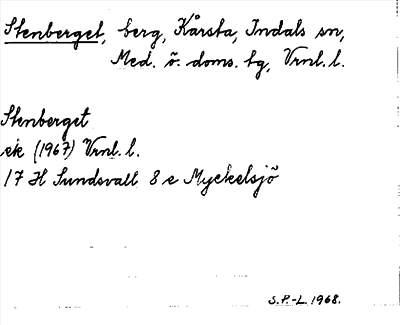 Stenberget, berg, Kårsta, Indals sn,
Med. ö. doms. tg, Vrnl. l.
Stenberget
ek (1967) Vrnl. l.
17 H Sundsvall 8 e Myckelsjö
S.P.-L. 1968.